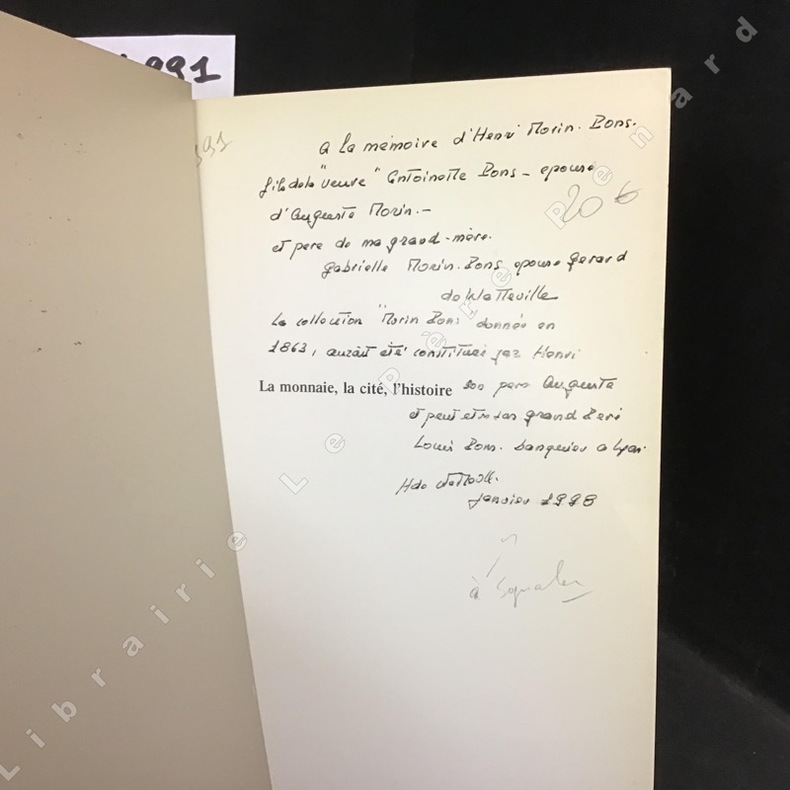 991
991
a la mémoire d'Henri Morin. Pons.
fils de la "veuve" Antoinette Pons - epouse
20 €
d'Auguste Morin. -
et pere de ma grand-mère.
gabrielle Morin. Pons epouse gerard
de Watteville
La collection "Morin Pons" donnée en
1863, aurait été constituée par Henri
La monnaie, la cité, l'histoire
son pere Auguste
et peut etre son grand Pere
Louis Pons. banquier a Lyon.
H de Watteville.
janvier 1998
à signaler
Librairie Le Père Pénard